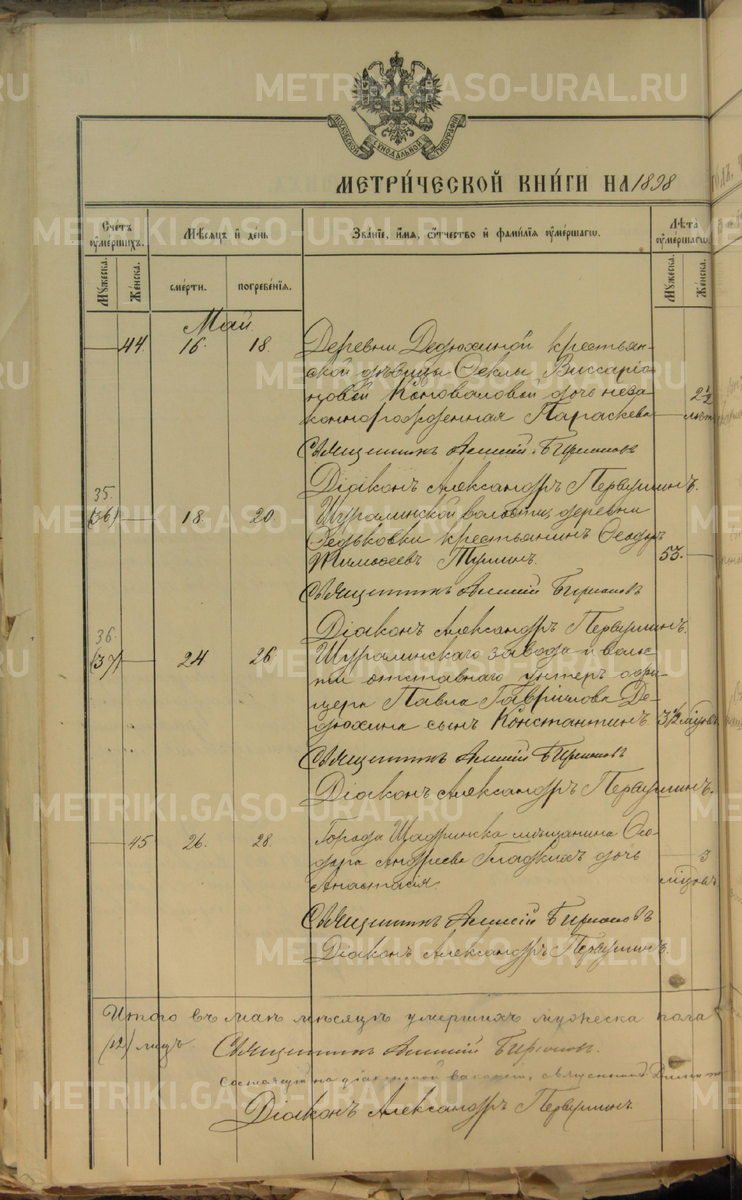 METRIKI.GASO-URAL.RU
МОСКОВСКОЙ СѴНОДАЛЬНОЙ ТИПОГРАФІИ
МЕТРИ́ЧЕСКОЙ КНИ́ГИ НА 1898
Сче́тъ ᲂу҆ме́ршихъ.
Мѣ́сѧцъ и҆ де́нь
Зва́нїе, и҆́мѧ, ѻ҆́тчество и҆ фами́лїѧ ᲂу҆ме́ршагѡ.
Лѣ́та ᲂу҆ме́ршагѡ.
Мꙋ́жеска.
Же́нска.
сме́рти.
погребе́нїѧ.
Мꙋ́жеска.
Же́нска.
Май
44 16. 18. Деревни Дедюхиной крестьян-
ской дѣвицы Ѳеклы Виссаріо-
новой Коноваловой дочь неза- 2½
коннорожденная Параскева лѣт
Священникъ Алексій Бирюковъ
Діаконъ Александръ Первушинъ.
35.
(36) 18. 20. Шуралинской волости, деревни
Ѳедьковки крестьянинъ Ѳеодоръ
Тимоѳеевъ 53.
Священникъ Алексій Бирюковъ
Діаконъ Александръ Первушинъ.
36.
(37) 24 26 Шуралинскаго завода и волос-
ти отставнаго унтеръ офи-
цера Павла Гаврилова Де-
дюхина сынъ Константинъ 3½ мѣсяц.
Священникъ Алексій Бирюковъ
Діаконъ Александръ Первушинъ.
45 26. 28. Города Шадринска мѣщанина Ѳео-
дора Андреева Гладкихъ дочь 3
Анастасія мѣсяц.
Священникъ Алексій Бирюковъ
Діаконъ Александръ Первушинъ.
Итого въ маѣ мѣсяцѣ умершихъ мужеска пола
(12) лицъ Священникъ Алексій Бирюковъ.
Состоящій на діаконской вакансіи, священникъ
Діаконъ Александръ Первушинъ.